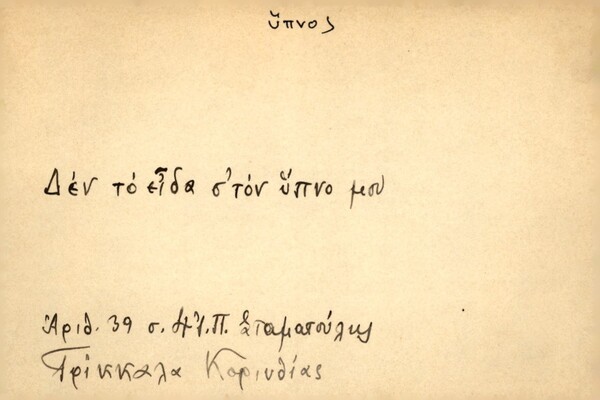 ὕπνος
Δέν τό εἶδα σ'τόν ὕπνο μου
Ἀριθ. 39 σ. Π. Σταματούλης
Τρίκκαλα Κορινθίας